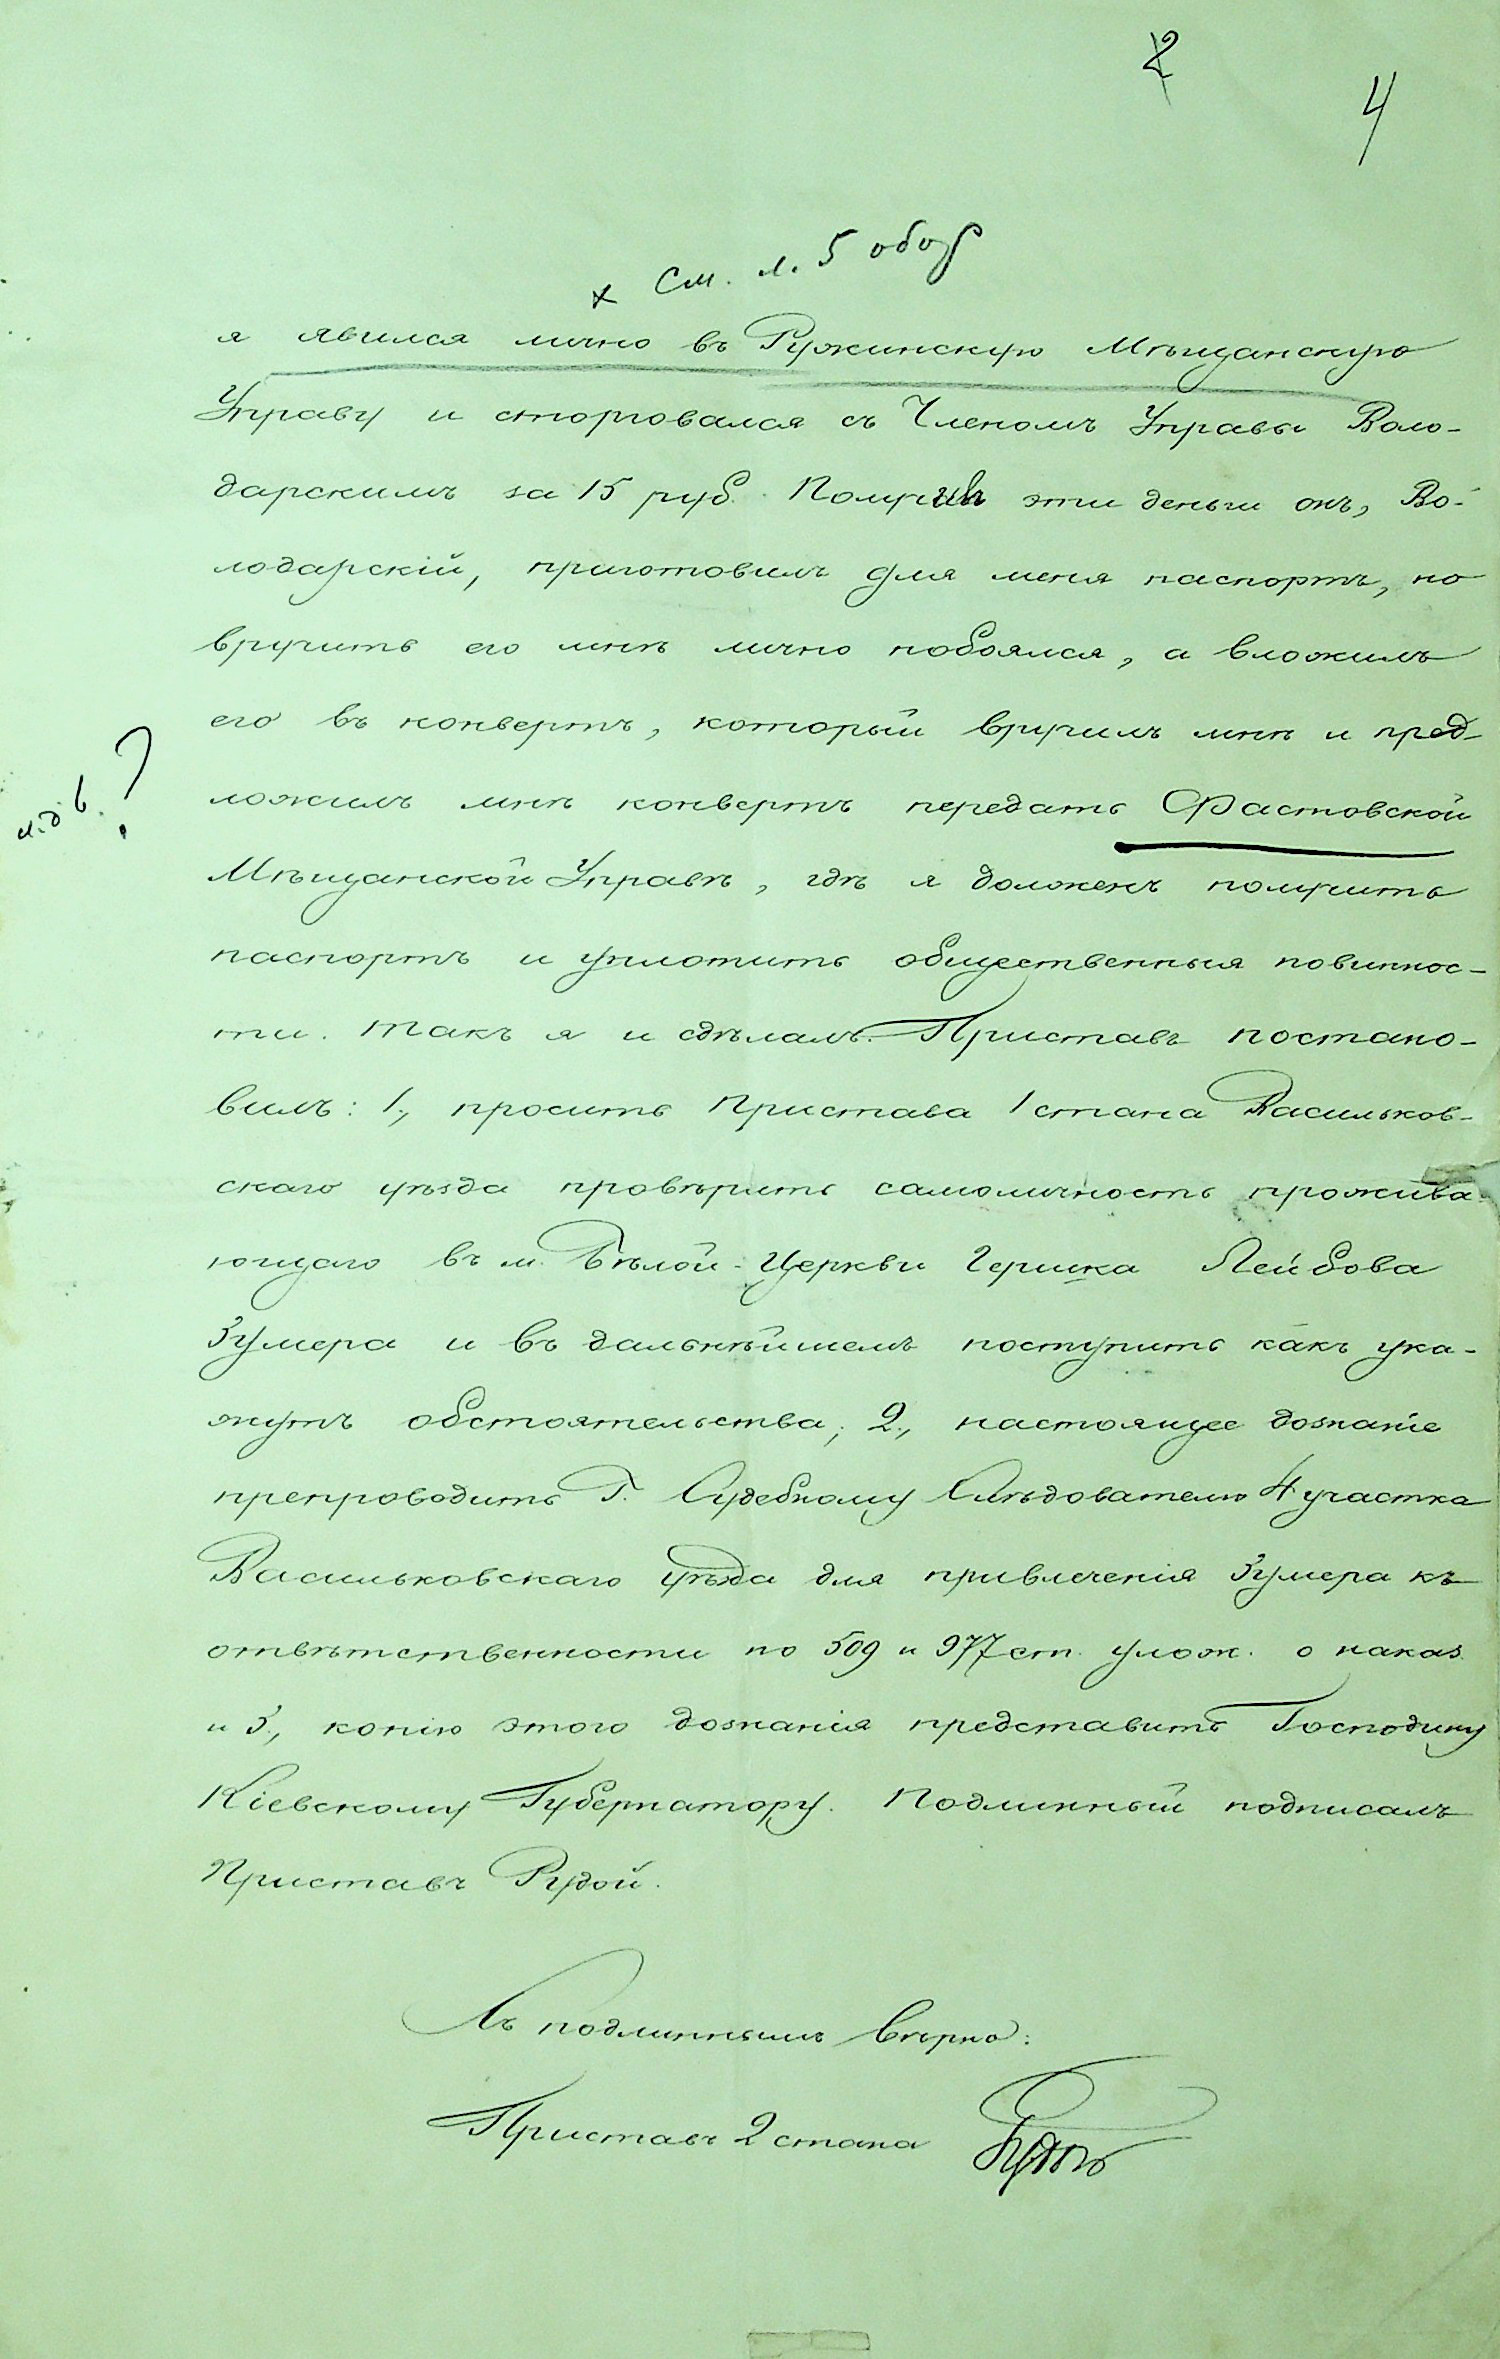 2
4
х См. л. 5 обор
я явился лично въ Ружинскую Мѣщанскую
Управу и сторговался съ Членомъ Управы Воло-
дарскимъ за 15 руб. Получивъ эти деньги онъ, Во-
лодарскій, приготовилъ для меня паспортъ, но
вручить его мнѣ лично побоялся, а вложилъ
его въ конвертъ, который вручилъ мнѣ и пред-
ложилъ мнѣ конвертъ передать Фастовской
?
Мѣщанской Управѣ, гдѣ я долженъ получить
паспортъ и уплотить общественныя повиннос-
ти. Такъ я и сдѣлалъ. Приставъ постано-
вилъ: 1, просить Пристава 1 стана Васильков-
скаго уѣзда провѣрить самоличность прожива-
ющаго въ м. Бѣлой-Церкви Гершка Лейбова
Зумера и въ дальнѣйшемъ поступить какъ ука-
жутъ обстоятельства; 2, настоящее дознаніе
препроводить Г. Судебному Слѣдователю 4 участка
Васильковскаго уѣзда для привлеченія Зумера къ
отвѣтственности по 509 и 977 ст. улож. о наказ.
и 3, копію этого дознанія представить Господину
Кіевскому Губернатору. Подлинный подписалъ
Приставъ Рудой.
Съ подлиннымъ вѣрно:
Приставъ 2 стана